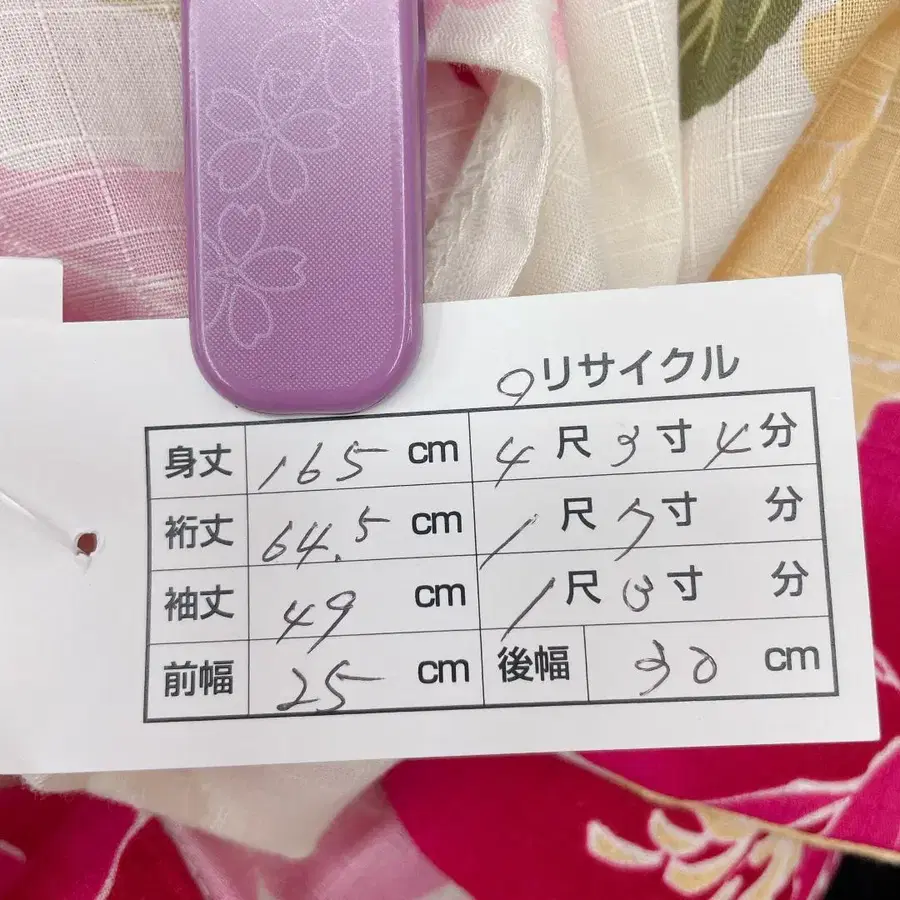 9リサイクル
身丈 165 cm 4尺3寸4分
裄丈 64.5 cm 1尺7寸 分
袖丈 49 cm 1尺3寸 分
前幅 25 cm 後幅 30 cm